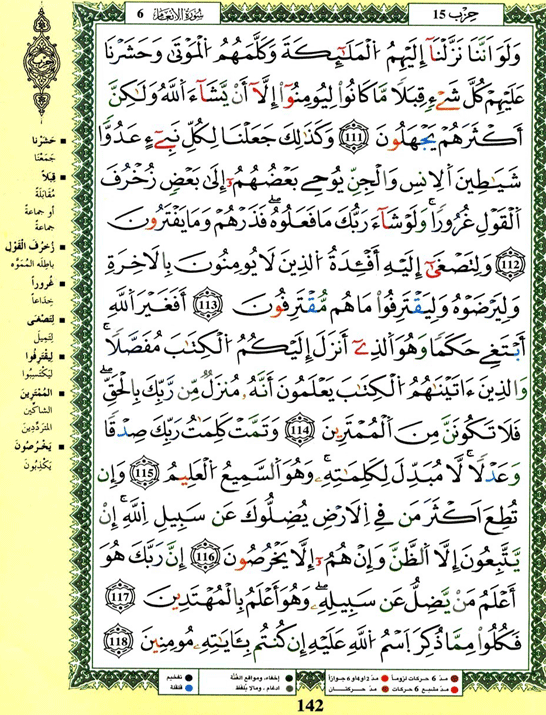 سُورَةُ الأَنْعَامِ 6
حِزْب 15
وَلَوَ اَنَّنَا نَزَّلْنَا إِلَيْهِمُ الْمَلَٰٓئِكَةَ وَكَلَّمَهُمُ الْمَوْتَىٰ وَحَشَرْنَا
عَلَيْهِمْ كُلَّ شَےْءٖ قِبَلاً مَّا كَانُواْ لِيُومِنُوٓاْ إِلَّآ أَنْ يَّشَآءَ اَللَّهُ وَلَٰكِنَّ
أَكْثَرَهُمْ يَجْهَلُونَ 111 وَكَذَٰلِكَ جَعَلْنَا لِكُلِّ نَبِےٓءٍ عَدُوّاً
شَيَٰطِينَ اَلِانسِ وَالْجِنِّ يُوحِے بَعْضُهُمُۥٓ إِلَىٰ بَعْضٖ زُخْرُفَ
اَلْقَوْلِ غُرُوراً وَلَوْ شَآءَ رَبُّكَ مَا فَعَلُوهُ فَذَرْهُمْ وَمَا يَفْتَرُونَ
112 وَلِتَصْغَىٰٓ إِلَيْهِ أَفْـِٕدَةُ اُلذِينَ لَا يُومِنُونَ بِالَاخِرَةِ
وَلِيَرْضَوْهُ وَلِيَقْتَرِفُواْ مَا هُم مُّقْتَرِفُونَ 113 أَفَغَيْرَ اَللَّهِ
أَبْتَغِے حَكَماً وَهُوَ اَلذِےٓ أَنزَلَ إِلَيْكُمُ اُلْكِتَٰبَ مُفَصَّلاً
وَالذِينَ ءَاتَيْنَٰهُمُ اُلْكِتَٰبَ يَعْلَمُونَ أَنَّهُۥ مُنزَلٌ مِّن رَّبِّكَ بِالْحَقِّ
فَلَا تَكُونَنَّ مِنَ اَلْمُمْتَرِينَ 114 وَتَمَّتْ كَلِمَٰتُ رَبِّكَ صِدْقاً
وَعَدْلاً لَّا مُبَدِّلَ لِكَلِمَٰتِهِۦ وَهُوَ اَلسَّمِيعُ اُلْعَلِيمُ 115 وَإِن
تُطِعَ اَكْثَرَ مَن فِے اِلَارْضِ يُضِلُّوكَ عَن سَبِيلِ اِللَّهِ إِنْ
يَّتَّبِعُونَ إِلَّا اَلظَّنَّ وَإِنْ هُمُۥٓ إِلَّا يَخْرُصُونَ 116 إِنَّ رَبَّكَ هُوَ
أَعْلَمُ مَنْ يَّضِلُّ عَن سَبِيلِهِۦ وَهُوَ أَعْلَمُ بِالْمُهْتَدِينَ 117
فَكُلُواْ مِمَّا ذُكِرَ اَسْمُ اُللَّهِ عَلَيْهِ إِن كُنتُم بِـَٔايَٰتِهِۦ مُومِنِينَ 118
حِزْب
حَشَرْنَا
جَمَعْنَا
قِبَلاً
مُقَابَلَةً
أو جماعةً
جماعةً
زُخْرُفَ الْقَوْلِ
باطِلَه المُمَوَّه
غُروراً
خِدَاعاً
لِتَصْغَى
لِتَمِيلَ
لِيَقْتَرِفُوا
لِيَكْتَسِبُوا
المُمْتَرِينَ
الشاكِّينَ
المتردِّدينَ
يَخْرُصُونَ
يَكْذِبُونَ
مدّ 6 حركات لزوماً مدّ 2 أو 4 أو 6 جوازاً إخفاء، ومواقع الغُنَّة تفخيم
مدّ مشبع 6 حركات مدّ حركتــان ادغام، وما لا يُلفَظ قلقلة
142